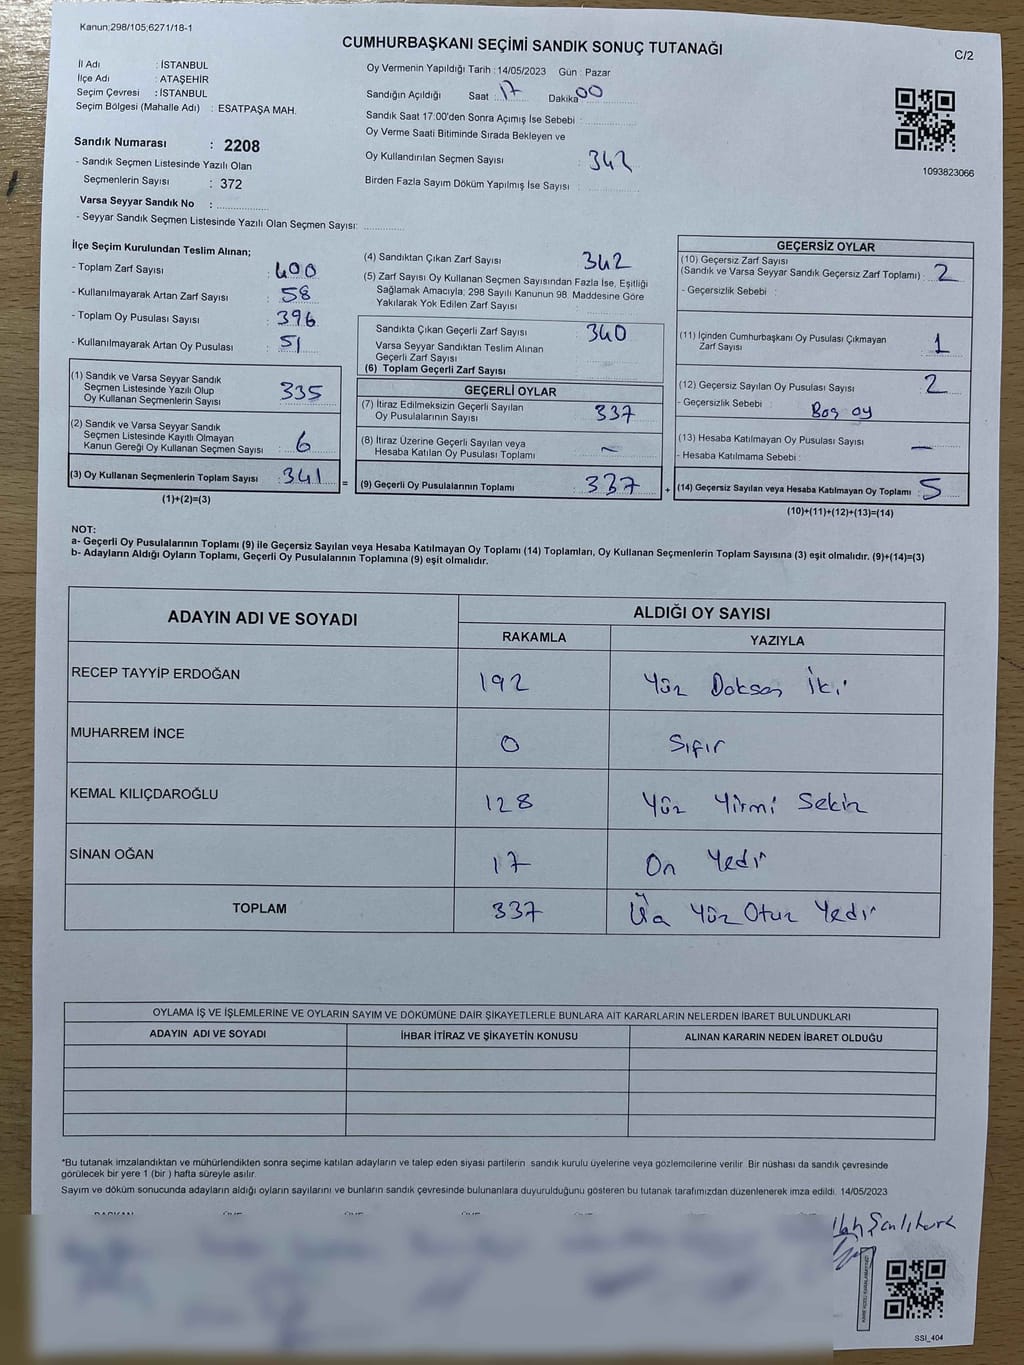 Kanun;298/105;6271/18-1
CUMHURBAŞKANI SEÇİMİ SANDIK SONUÇ TUTANAĞI
C/2
İl Adı : İSTANBUL
İlçe Adı : ATAŞEHİR
Seçim Çevresi : İSTANBUL
Seçim Bölgesi (Mahalle Adı) : ESATPAŞA MAH.
Sandık Numarası : 2208
- Sandık Seçmen Listesinde Yazılı Olan
Seçmenlerin Sayısı : 372
Varsa Seyyar Sandık No :
- Seyyar Sandık Seçmen Listesinde Yazılı Olan Seçmen Sayısı:
Oy Vermenin Yapıldığı Tarih : 14/05/2023 Gün : Pazar
Sandığın Açıldığı Saat : 17 Dakika 00
Sandık Saat 17:00'den Sonra Açımış İse Sebebi :
Oy Verme Saati Bitiminde Sırada Bekleyen ve
Oy Kullandırılan Seçmen Sayısı : 342
Birden Fazla Sayım Döküm Yapılmış İse Sayısı :
1093823066
İlçe Seçim Kurulundan Teslim Alınan;
- Toplam Zarf Sayısı : 400
- Kullanılmayarak Artan Zarf Sayısı : 58
- Toplam Oy Pusulası Sayısı : 396
- Kullanılmayarak Artan Oy Pusulası : 51
(1) Sandık ve Varsa Seyyar Sandık
Seçmen Listesinde Yazılı Olup
Oy Kullanan Seçmenlerin Sayısı : 335
(2) Sandık ve Varsa Seyyar Sandık
Seçmen Listesinde Kayıtlı Olmayan
Kanun Gereği Oy Kullanan Seçmen Sayısı : 6
(3) Oy Kullanan Seçmenlerin Toplam Sayısı : 341
(1)+(2)=(3)
=
(4) Sandıktan Çıkan Zarf Sayısı : 342
(5) Zarf Sayısı Oy Kullanan Seçmen Sayısından Fazla İse, Eşitliği
Sağlamak Amacıyla; 298 Sayılı Kanunun 98. Maddesine Göre
Yakılarak Yok Edilen Zarf Sayısı :
Sandıkta Çıkan Geçerli Zarf Sayısı : 340
Varsa Seyyar Sandıktan Teslim Alınan
Geçerli Zarf Sayısı :
(6) Toplam Geçerli Zarf Sayısı :
GEÇERLİ OYLAR
(7) İtiraz Edilmeksizin Geçerli Sayılan
Oy Pusulalarının Sayısı : 337
(8) İtiraz Üzerine Geçerli Sayılan veya
Hesaba Katılan Oy Pusulası Toplamı : ~
(9) Geçerli Oy Pusulalarının Toplamı : 337
+
GEÇERSİZ OYLAR
(10) Geçersiz Zarf Sayısı
(Sandık ve Varsa Seyyar Sandık Geçersiz Zarf Toplamı) : 2
- Geçersizlik Sebebi :
(11) İçinden Cumhurbaşkanı Oy Pusulası Çıkmayan
Zarf Sayısı : 1
(12) Geçersiz Sayılan Oy Pusulası Sayısı : 2
- Geçersizlik Sebebi : Boş oy
(13) Hesaba Katılmayan Oy Pusulası Sayısı : —
- Hesaba Katılmama Sebebi :
(14) Geçersiz Sayılan veya Hesaba Katılmayan Oy Toplamı : 5
(10)+(11)+(12)+(13)=(14)
NOT:
a- Geçerli Oy Pusulalarının Toplamı (9) ile Geçersiz Sayılan veya Hesaba Katılmayan Oy Toplamı (14) Toplamları, Oy Kullanan Seçmenlerin Toplam Sayısına (3) eşit olmalıdır. (9)+(14)=(3)
b- Adayların Aldığı Oyların Toplamı, Geçerli Oy Pusulalarının Toplamına (9) eşit olmalıdır.
ADAYIN ADI VE SOYADI
ALDIĞI OY SAYISI
RAKAMLA YAZIYLA
RECEP TAYYİP ERDOĞAN 192 Yüz Doksan İki
MUHARREM İNCE 0 Sıfır
KEMAL KILIÇDAROĞLU 128 Yüz Yirmi Sekiz
SİNAN OĞAN 17 On Yedi
TOPLAM 337 Üç Yüz Otuz Yedi
OYLAMA İŞ VE İŞLEMLERİNE VE OYLARIN SAYIM VE DÖKÜMÜNE DAİR ŞİKAYETLERLE BUNLARA AİT KARARLARIN NELERDEN İBARET BULUNDUKLARI
ADAYIN ADI VE SOYADI İHBAR İTİRAZ VE ŞİKAYETİN KONUSU ALINAN KARARIN NEDEN İBARET OLDUĞU
*Bu tutanak imzalandıktan ve mühürlendikten sonra seçime katılan adayların ve talep eden siyasi partilerin sandık kurulu üyelerine veya gözlemcilerine verilir. Bir nüshası da sandık çevresinde
görülecek bir yere 1 (bir ) hafta süreyle asılır.
Sayım ve döküm sonucunda adayların aldığı oyların sayılarını ve bunların sandık çevresinde bulunanlara duyurulduğunu gösteren bu tutanak tarafımızdan düzenlenerek imza edildi. 14/05/2023
BAŞKAN ÜYE ÜYE ÜYE ÜYE ÜYE
SSI_404